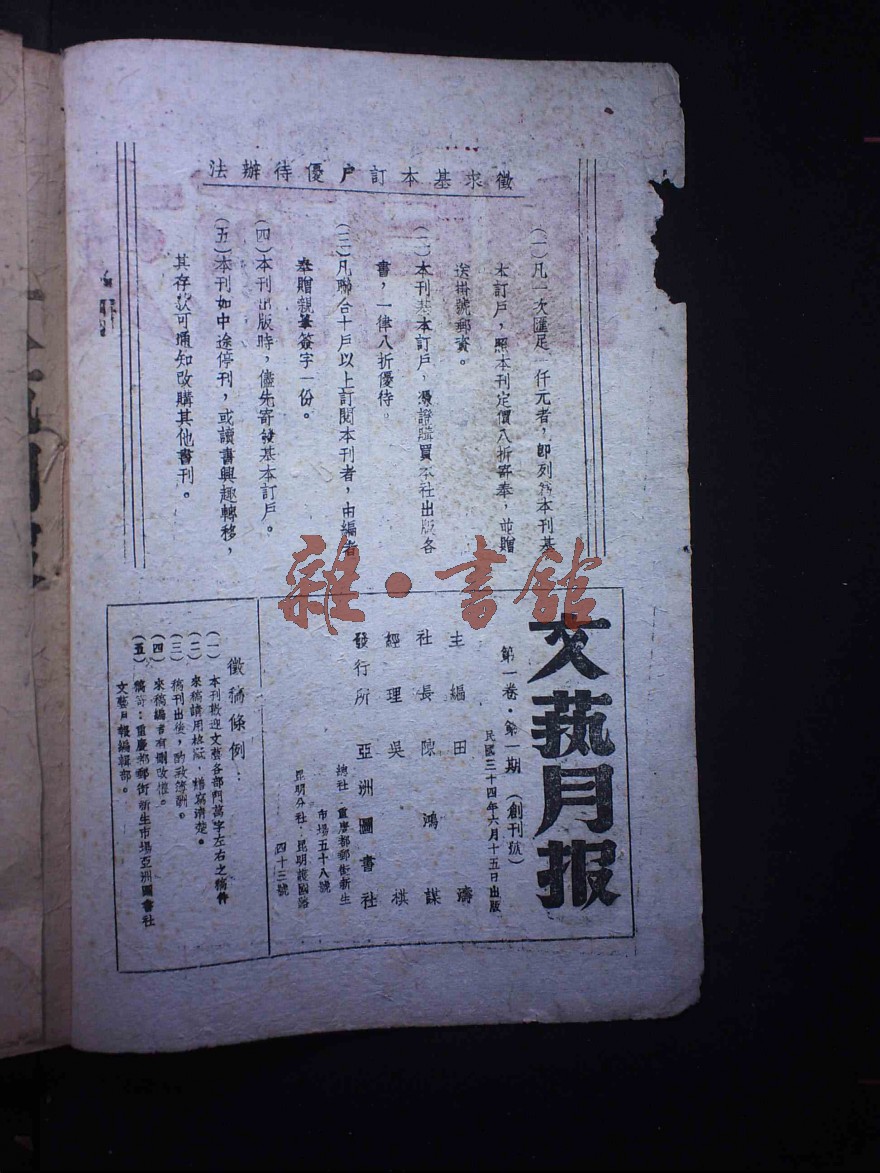 徵求基本訂戶優待辦法
(一)凡一次匯足一仟元者，卽列爲本刊基
本訂戶，照本刊定價八折寄奉，並贈
送掛號郵資。
(二)本刊基本訂戶，憑證購買本社出版各
書，一律八折優待。
(三)凡聯合十戶以上訂閱本刊者，由編者
奉贈親筆簽字一份。
(四)本刊出版時，儘先寄發基本訂戶。
(五)本刊如中途停刊，或讀書興趣轉移，
其存款可通知改購其他書刊。
雜·書館
文藝月报
第一卷·第一期（創刊號）
民國三十四年六月十五日出版
主編田濤
社長陳鴻謀
經理吳棋
發行所亞洲圖書社
總社：重慶都郵街新生
市場五十八號
昆明分社：昆明護國路
四十三號
徵稿條例：
(一)本刊歡迎文藝各部門萬字左右之稿件
(二)來稿請用格紙，繕寫清楚。
(三)稿刊出後，酌致薄酬。
(四)來稿編者有刪改權。
(五)稿寄：重慶都郵街新生市場亞洲圖書社
文藝月報編輯部。